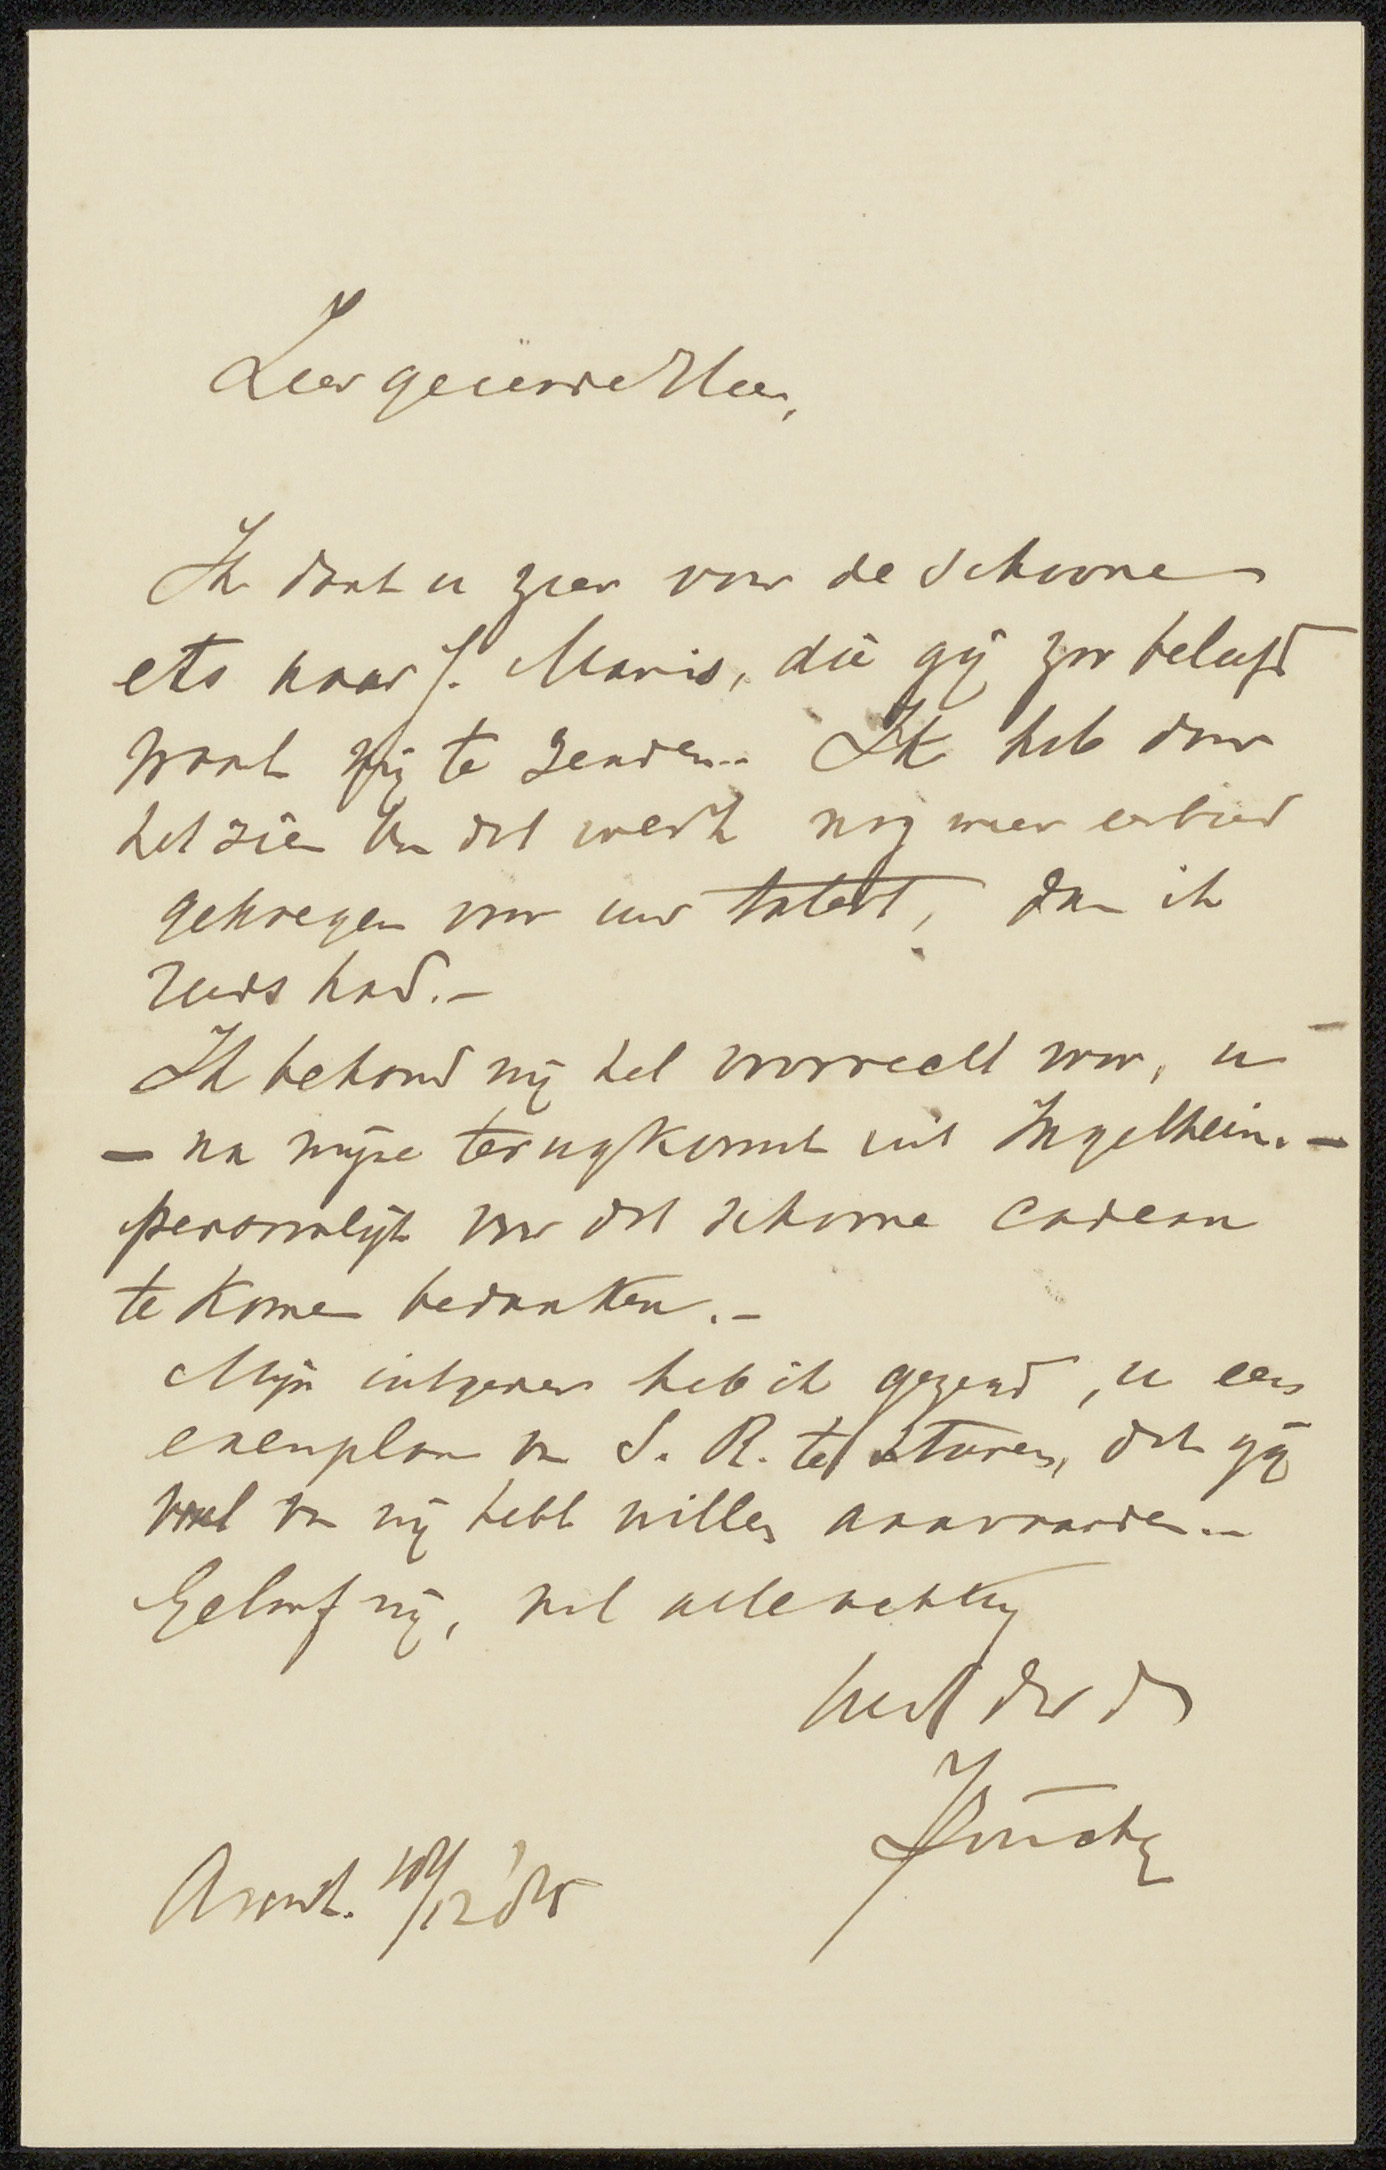 Zeer geëerde Heer,
Ik dank u zeer voor de schoone
ets naar J. Maris, die gij zoo beleefd
waart mij te zenden. Ik heb door
het zien van dat werk nog meer eerbied
gekregen voor uw talent, dan ik
reeds had. –
Ik behoud mij het voorrecht voor, u
– na mijne terugkomst uit Ingelheim. –
persoonlijk voor dat schoone cadeau
te komen bedanken. –
Mijn uitgever heb ik gezegd, u een
exemplaar van S. R. te sturen, dat gij
wel van mij hebt willen aanvaarden. –
Geloof mij, met alle achting
Avond. /12 '85